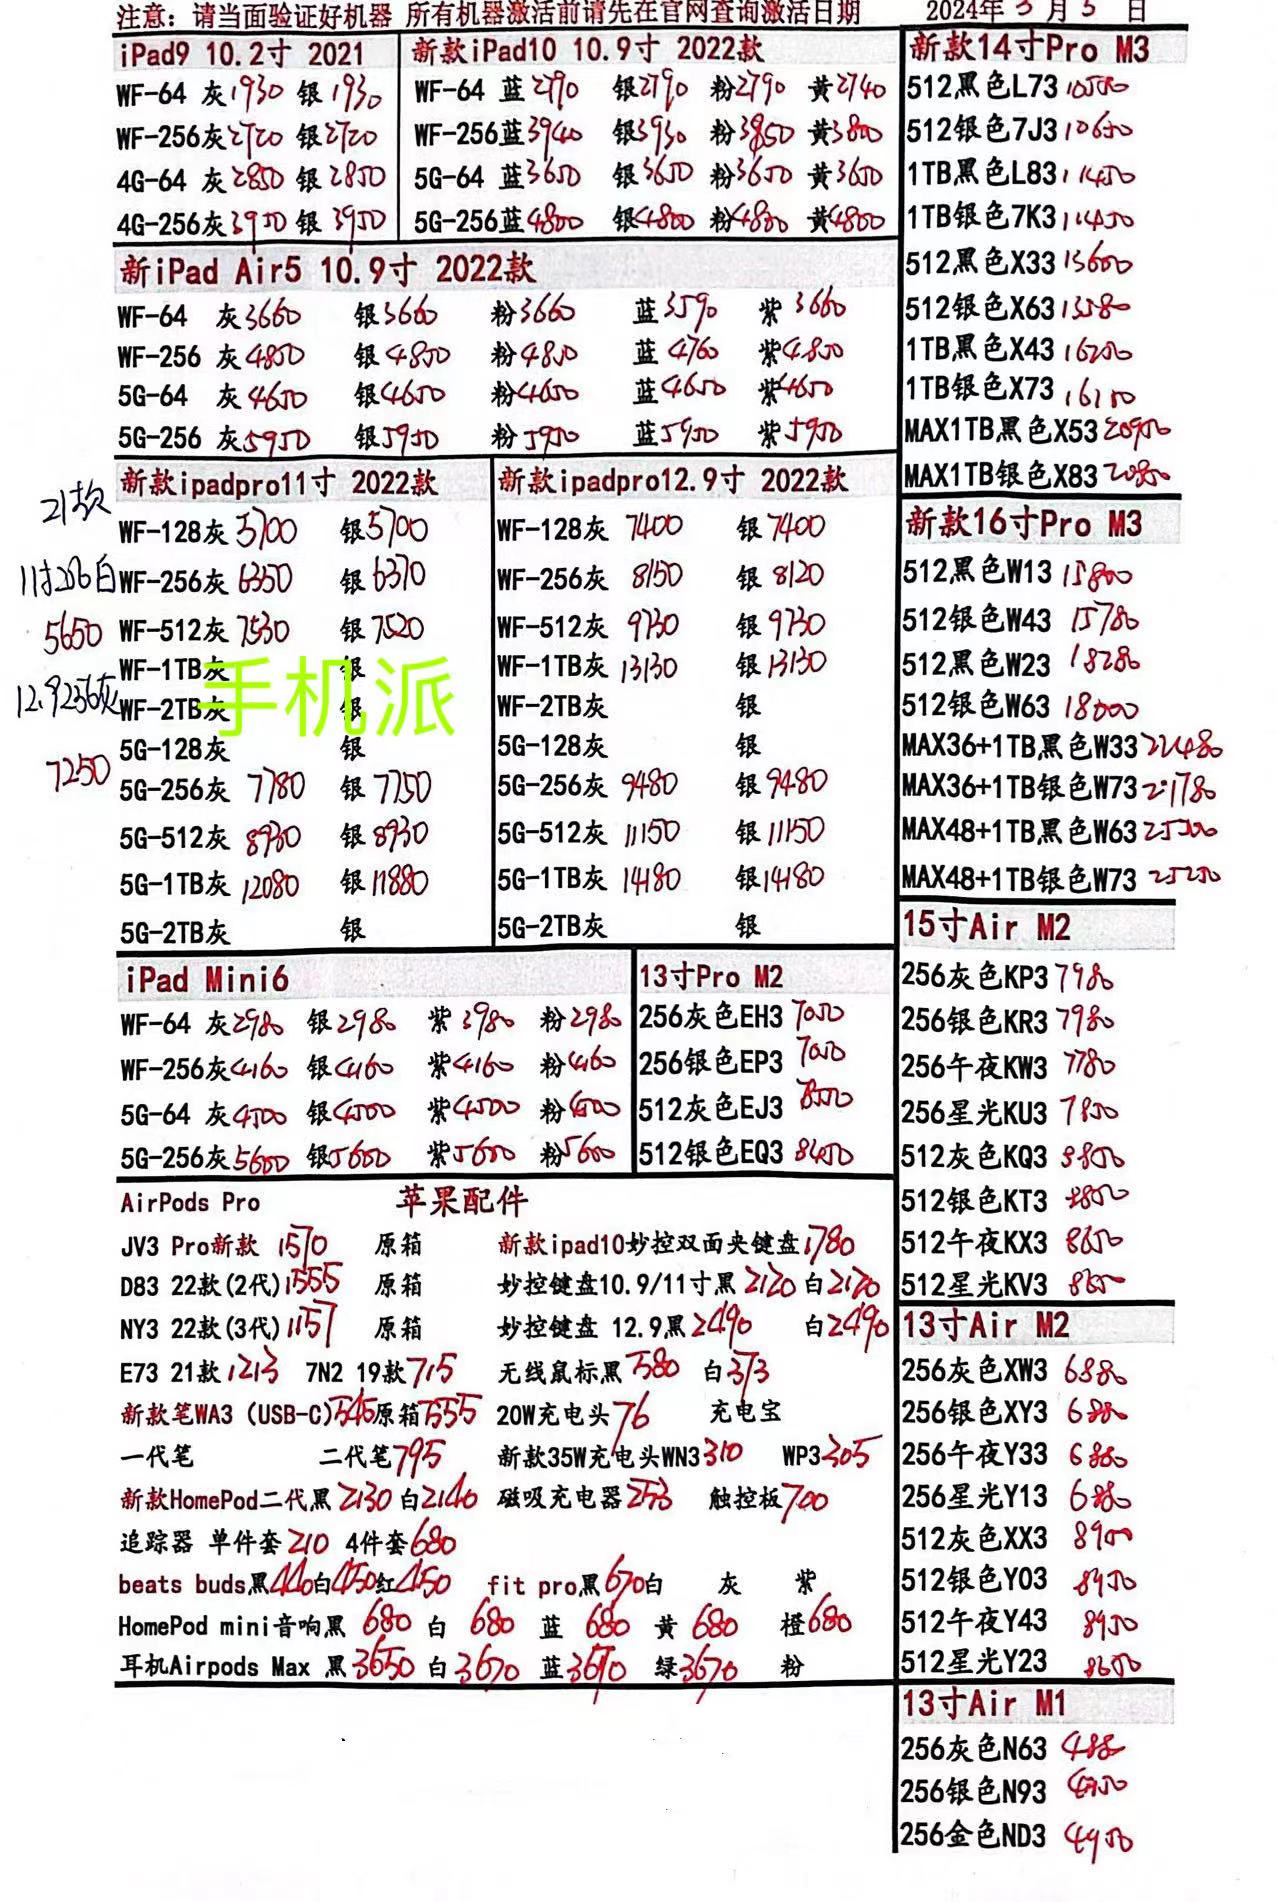 注意：请当面验证好机器 所有机器激活前请先在官网查询激活日期 2024年3月5日
iPad9 10.2寸 2021
WF-64 灰1930 银1930
WF-256灰2720 银2720
4G-64 灰2850 银2850
4G-256灰3950 银3950
新款iPad10 10.9寸 2022款
WF-64 蓝2790 银2790 粉2790 黄2740
WF-256蓝3940 银3930 粉3850 黄3800
5G-64 蓝3650 银3650 粉3650 黄3650
5G-256蓝4800 银4800 粉4800 黄4800
新iPad Air5 10.9寸 2022款
WF-64 灰3660 银3660 粉3660 蓝3590 紫3660
WF-256 灰4850 银4850 粉4850 蓝4760 紫4850
5G-64 灰4650 银4650 粉4650 蓝4650 紫4650
5G-256 灰5950 银5950 粉5950 蓝5950 紫5950
21款
11寸256白
5650
12.9256灰
7250
新款ipadpro11寸 2022款
WF-128灰5700 银5700
WF-256灰6350 银6370
WF-512灰7530 银7520
WF-1TB灰 银
手机派
WF-2TB灰 银
5G-128灰 银
5G-256灰 7780 银7750
5G-512灰 8930 银8930
5G-1TB灰 12080 银11880
5G-2TB灰 银
新款ipadpro12.9寸 2022款
WF-128灰 7400 银7400
WF-256灰 8150 银8120
WF-512灰 9730 银9730
WF-1TB灰 13130 银13130
WF-2TB灰 银
5G-128灰 银
5G-256灰 9480 银9480
5G-512灰 11150 银11150
5G-1TB灰 14180 银14180
5G-2TB灰 银
iPad Mini6
WF-64 灰2980 银2980 紫3980 粉2980
WF-256灰4160 银4160 紫4160 粉4160
5G-64 灰4500 银4500 紫4500 粉4500
5G-256灰5600 银5600 紫5600 粉5600
13寸Pro M2
256灰色EH3 7050
256银色EP3 7050
512灰色EJ3 8550
512银色EQ3 8450
AirPods Pro 苹果配件
JV3 Pro新款 1570 原箱 新款ipad10妙控双面夹键盘1780
D83 22款(2代)1555 原箱 妙控键盘10.9/11寸黑2120 白2120
NY3 22款(3代)1157 原箱 妙控键盘 12.9黑2490 白2490
E73 21款1213 7N2 19款715 无线鼠标黑580 白373
新款笔WA3 (USB-C)545原箱555 20W充电头76 充电宝
一代笔 二代笔795 新款35W充电头WN3310 WP3305
新款HomePod二代黑2130白2140 磁吸充电器253 触控板700
追踪器 单件套210 4件套680
beats buds黑440白450红450 fit pro黑670白 灰 紫
HomePod mini音响黑 680 白 680 蓝 680 黄 680 橙680
耳机Airpods Max 黑3650 白3670 蓝3670 绿3670 粉
新款14寸Pro M3
512黑色L73 10500
512银色7J3 10650
1TB黑色L83 11450
1TB银色7K3 11450
512黑色X33 13600
512银色X63 13580
1TB黑色X43 16250
1TB银色X73 16150
MAX1TB黑色X53 20950
MAX1TB银色X83 20850
新款16寸Pro M3
512黑色W13 15800
512银色W43 15780
512黑色W23 18280
512银色W63 18000
MAX36+1TB黑色W33 22480
MAX36+1TB银色W73 21780
MAX48+1TB黑色W63
MAX48+1TB银色W73 25250
15寸Air M2
256灰色KP3 7980
256银色KR3 7980
256午夜KW3 7780
256星光KU3 7850
512灰色KQ3 8850
512银色KT3 8850
512午夜KX3 8650
512星光KV3 8650
13寸Air M2
256灰色XW3 6880
256银色XY3 6880
256午夜Y33 6880
256星光Y13 6880
512灰色XX3 8900
512银色Y03 8950
512午夜Y43 8950
512星光Y23 8650
13寸Air M1
256灰色N63 4880
256银色N93 4950
256金色ND3 4950